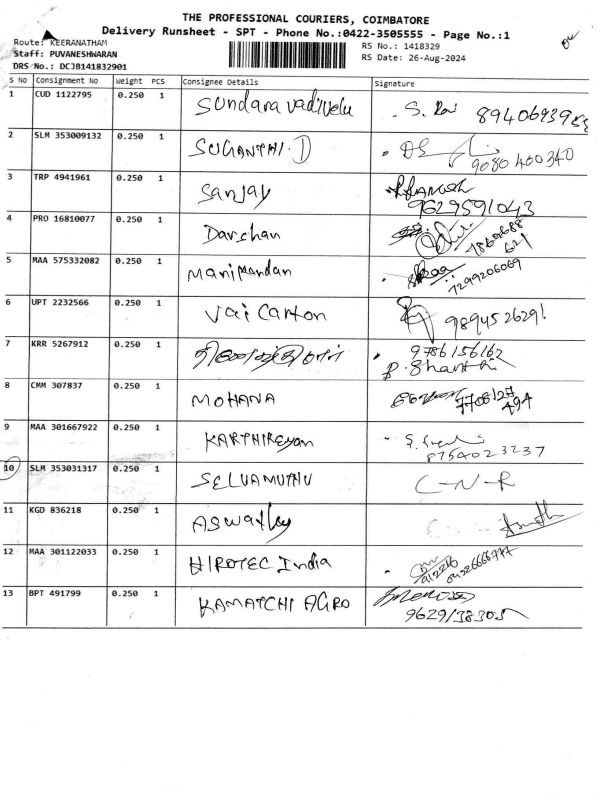 THE PROFESSIONAL COURIERS, COIMBATORE
Delivery Runsheet - SPT - Phone No.:0422-3505555 - Page No.:1
Route: KEERANATHAM
RS No.: 1418329
Staff: PUVANESHWARAN
RS Date: 26-Aug-2024
DRS No.: DCJB141832901
S No Consignment No Weight PCS Consignee Details Signature
1 CUD 1122795 0.250 1 Sundara vadivelu S. 
2 SLM 353009132 0.250 1 SUGANTHI.D 9080 400340
3 TRP 4941961 0.250 1 Sanjay 9629591043
4 PRO 16810077 0.250 1 Darshan 7868688 621
5 MAA 575332082 0.250 1 Manikandan 7299206069
6 UPT 2232566 0.250 1 Vai Carton 9894526291
7 KRR 5267912 0.250 1 9786156162
P. Shanthi
8 CMM 307837 0.250 1 MOHANA 7708127 494
9 MAA 301667922 0.250 1 KARTHIKEyan 8754023237
10 SLM 353031317 0.250 1 SELVAMUTHU C-N-R
11 KGD 836218 0.250 1 Aswathy
12 MAA 301122033 0.250 1 HIROTEC India
13 BPT 491799 0.250 1 KAMATCHI AGRO 9629138305